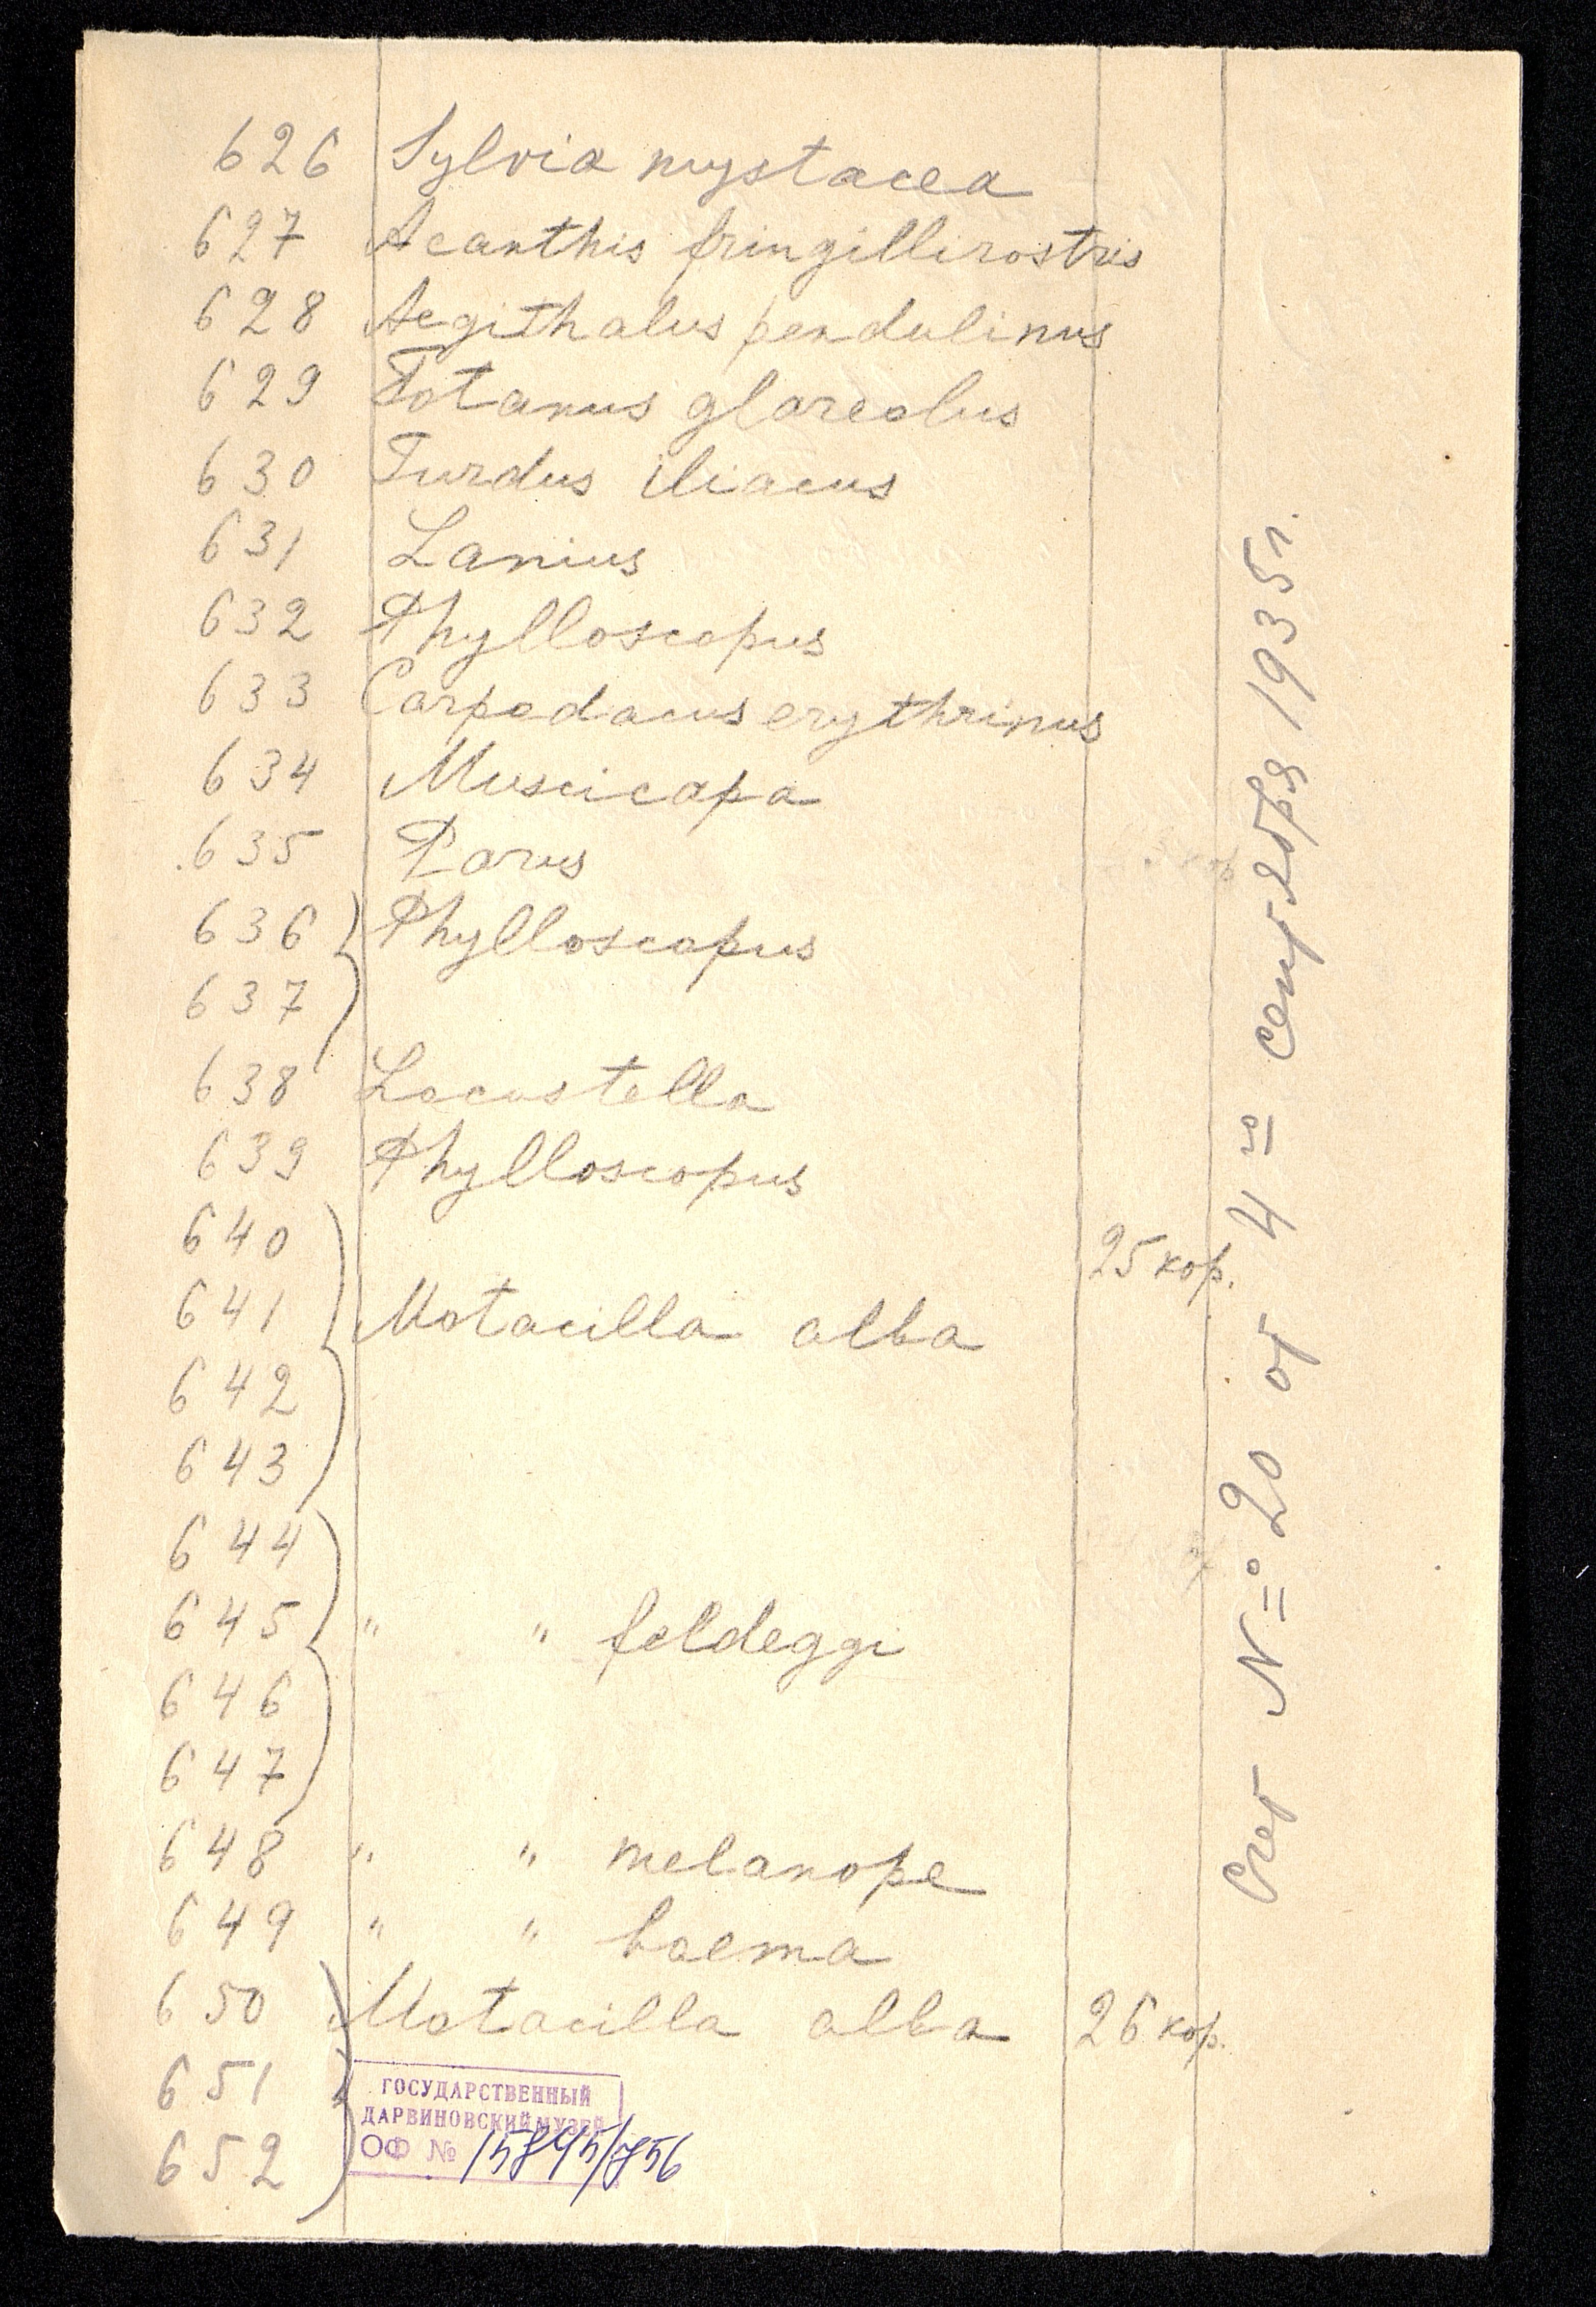 626 Sylvia mystacea
627 Acanthis fringillirostris
628 Aegithalus pendulinus
629 Totanus glareolus
630 Turdus iliacus
631 Lanius
632 Phylloscopus
633 Carpodacus erythrinus
634 Muscicapa
635 Parus
636 Phylloscopus
637
638 Locustella
639 Phylloscopus
640 25 кор.
641 Motacilla alba
642
643
644
645 " " feldeggi
646
647
648 " " melanope
649 " " boema
650 Motacilla alba 26 кор.
651
652
ГОСУДАРСТВЕННЫЙ
ДАРВИНОВСКИЙ МУЗЕЙ
ОФ № 15845/756
Счет № 20 от 4го сентября 1935 г.